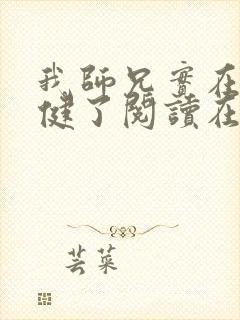 我師兄實在
健了閱讀在
芸菜